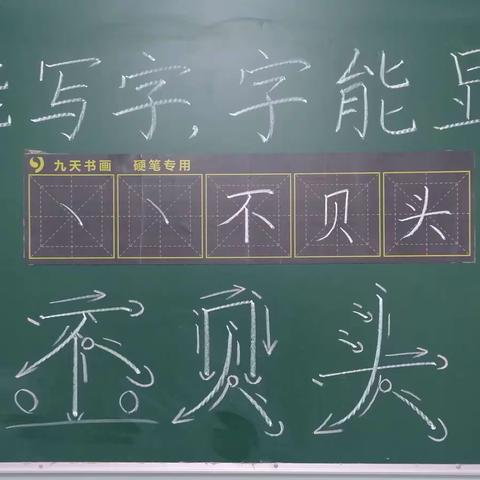 写字,字能
九天书画 硬笔专用
丶 丶 不 贝 头
不 贝 头